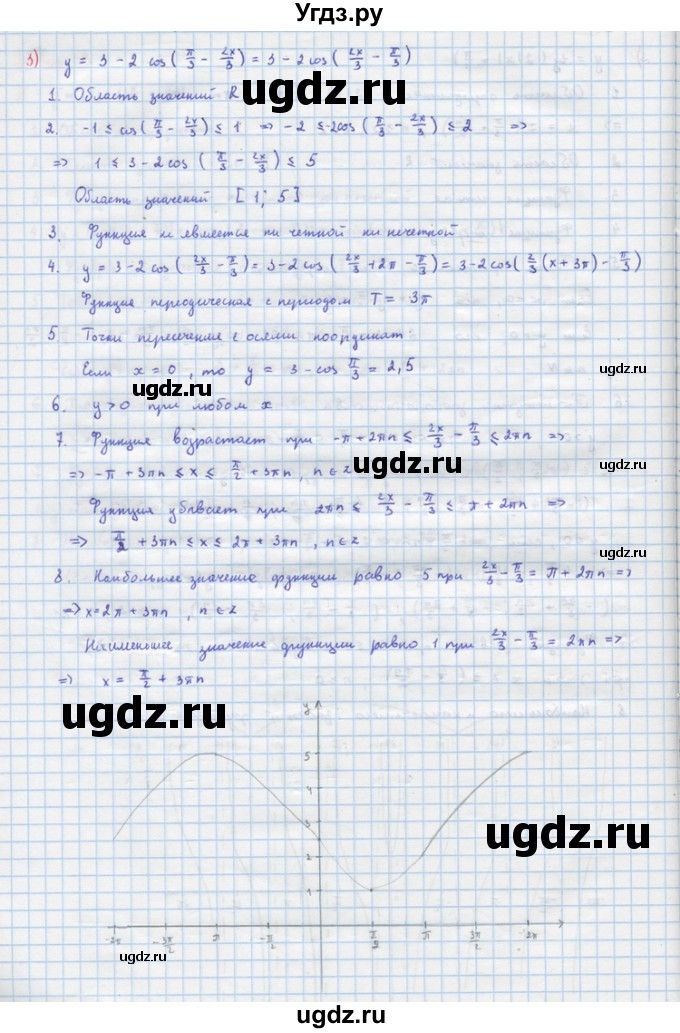 Угдз.ру
3) y = 3 - 2 cos(π/3 - 2x/3) = 3 - 2cos(2x/3 - π/3)
1. Область значений R
2. -1 ≤ cos(π/3 - 2x/3) ≤ 1 ⇒ -2 ≤ -2cos(π/3 - 2x/3) ≤ 2 ⇒
⇒ 1 ≤ 3 - 2cos(π/3 - 2x/3) ≤ 5
Область значений [1; 5]
3. Функция не является ни четной ни нечетной
4. y = 3 - 2cos(2x/3 - π/3) = 3 - 2cos(2x/3 + 2π - π/3) = 3 - 2cos(2/3(x + 3π) - π/3)
Функция периодическая с периодом T = 3π
5. Точки пересечения с осями координат:
Если x = 0, то y = 3 - cos π/3 = 2,5
6. y > 0 при любом x
7. Функция возрастает при -π + 2πn ≤ 2x/3 - π/3 ≤ 2πn ⇒
⇒ -π + 3πn ≤ x ≤ π/2 + 3πn, n ∈ z
Функция убывает при 2πn ≤ 2x/3 - π/3 ≤ π + 2πn ⇒
⇒ π/2 + 3πn ≤ x ≤ 2π + 3πn, n ∈ z
8. Наибольшее значение функции равно 5 при 2x/3 - π/3 = π + 2πn ⇒
⇒ x = 2π + 3πn, n ∈ z
Наименьшее значение функции равно 1 при 2x/3 - π/3 = 2πn ⇒
⇒ x = π/2 + 3πn
y
5
4
3
2
1
-2π -3π/2 π -π/2 π/2 π 3π/2 2π
ugdz.ru
ugdz.ru
ugdz.ru
ugdz.ru
ugdz.ru
ugdz.ru
ugdz.ru
ugdz.ru
ugdz.ru
ugdz.ru
ugdz.ru
ugdz.ru
ugdz.ru